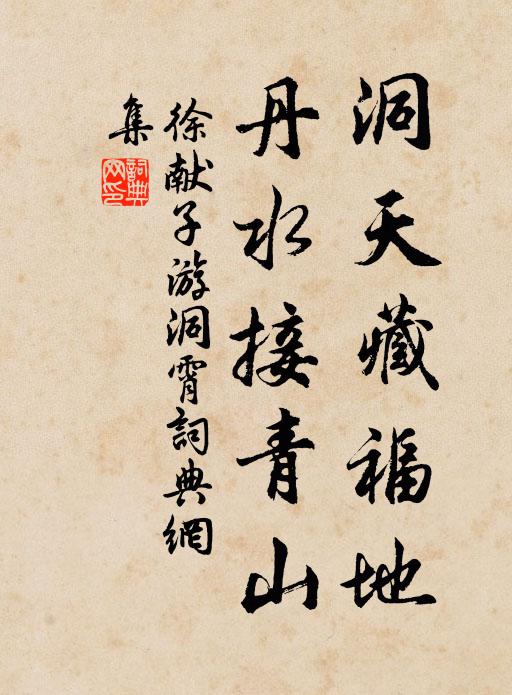 洞天藏福地
丹水接青山
徐献子游洞霄詞典網
集
詞典
网印